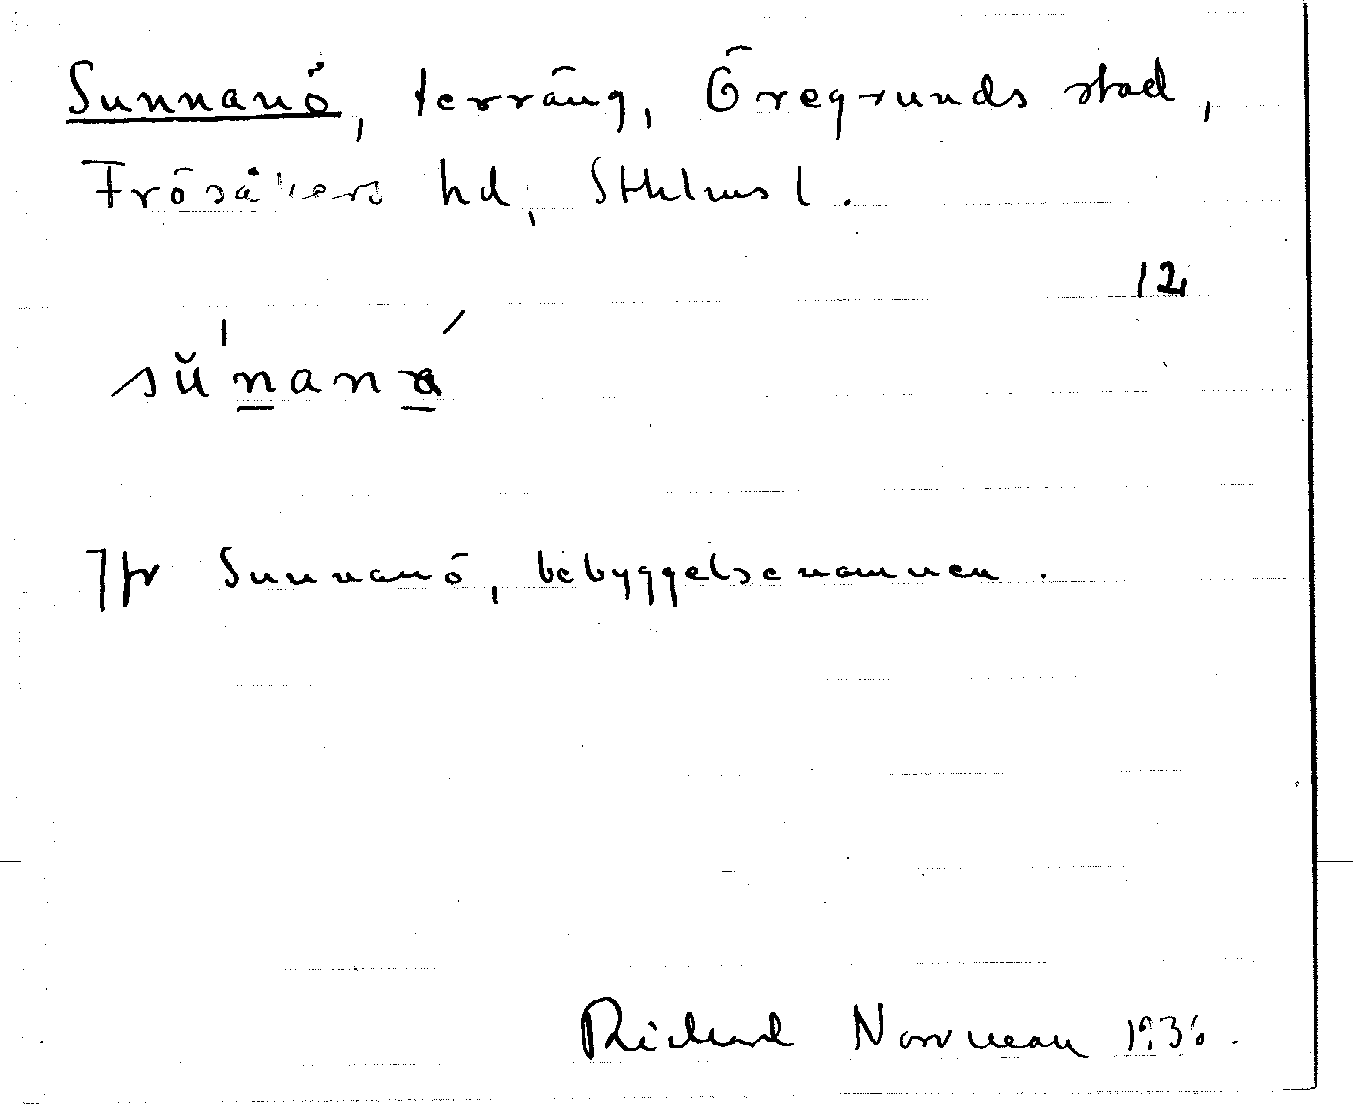 Sunnanö, terräng, Öregrunds stad,
Frösåkers hd, Sthlms l.
12
Jfr Sunnanö, bebyggelsenamnen.
Richard Norrman 1936.